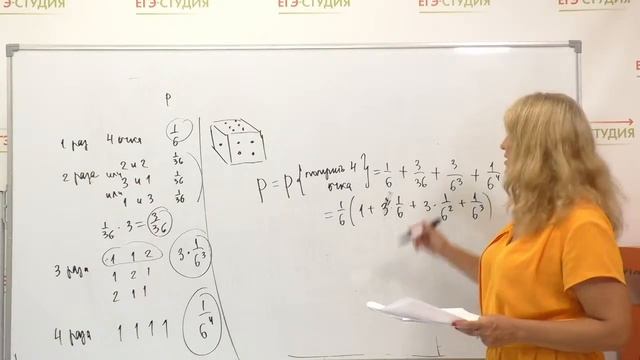 ЕГЭ-СТУДИЯ
ЕГЭ-СТУДИЯ
ЕГЭ-СТУДИЯ
СТУДИЯ
P
1 раз 4 очка 1/6
2 раза или 2 и 2 1/36
или 3 и 1 1/36
1 и 3 1/36
1/36 · 3 = 3/36
3 раза 1 1 2 3 · 1/6³
1 2 1
2 1 1
4 раза 1 1 1 1 1/6⁴
P = P{получить 4 очка} = 1/6 + 3/36 + 3/6³ + 1/6⁴
= 1/6 (1 + 3 · 1/6 + 3 · 1/6² + 1/6³)